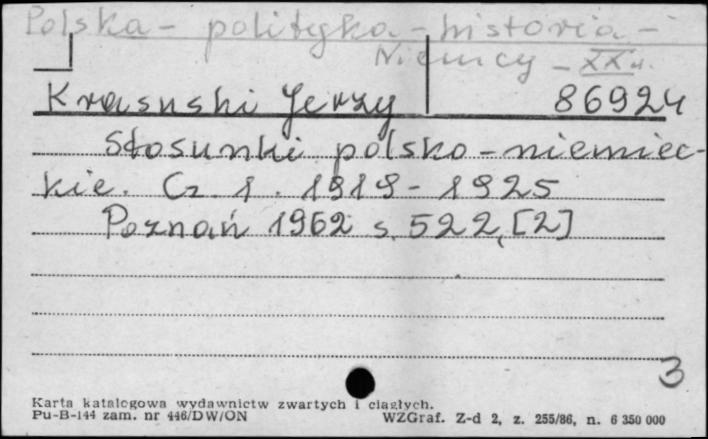 Polska - polityka - historia -
Niemcy - XX w.
Krasuski Jerzy 86924
Stosunki polsko-niemiec-
kie. Cz 1. 1919-1925
Poznań 1962 s. 522, [2]
3
Karta katalogowa wydawnictw zwartych i ciągłych.
Pu-B-144 zam. nr 446/DW/ON WZGraf. Z-d 2, z. 255/86, n. 6 350 000